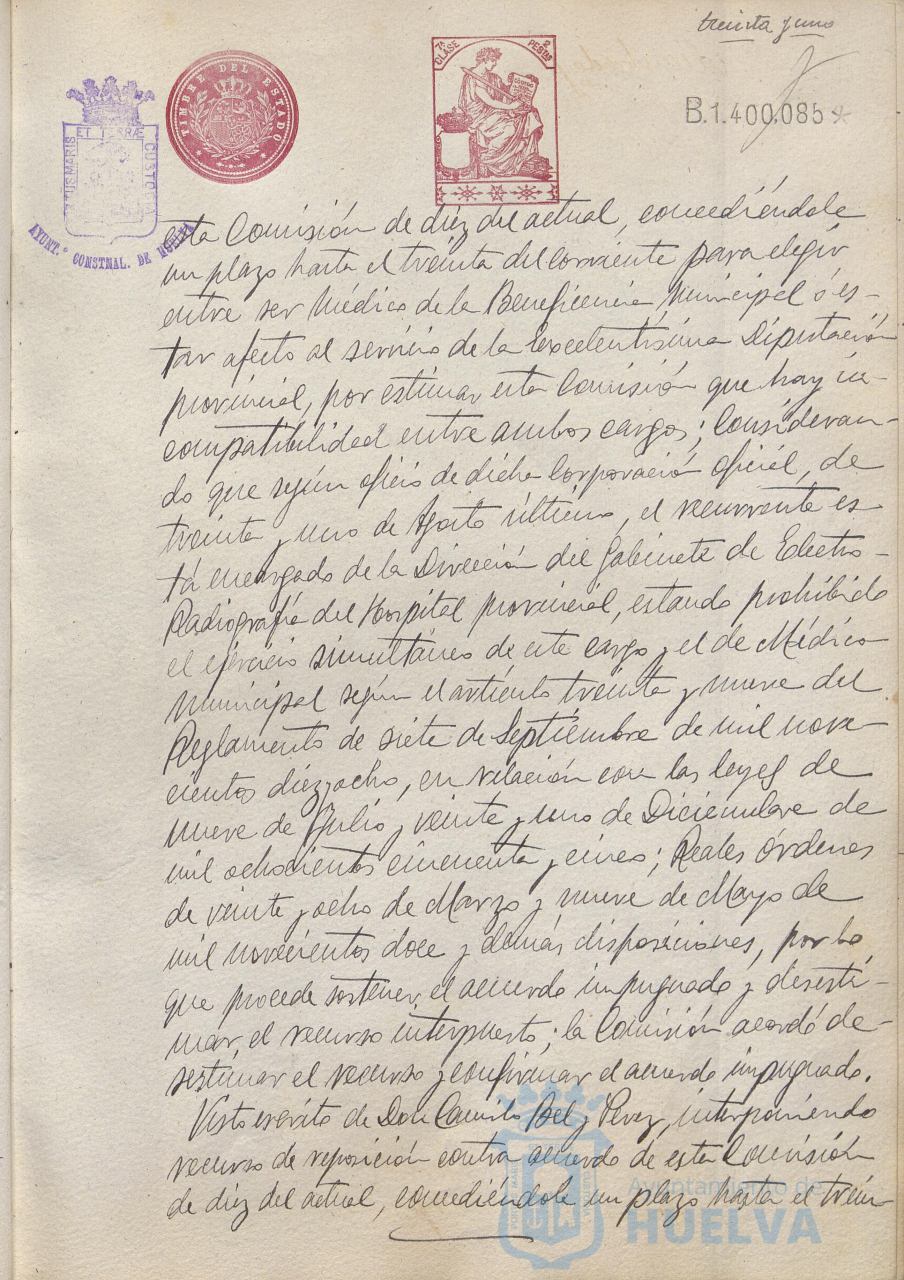 treinta y uno
7ª CLASE
2 PESETAS
TIMBRE DEL ESTADO
B.1.400.085
ET TERRÆ
TUS MARIS
CUSTODIA
AYUNT.º CONSTNAL. DE HUELVA
esta Comisión de diéz del actual, concediéndole
un plazo hasta el treinta del corriente para elegir
entre ser Médico de la Beneficencia Municipal ó es-
tar afecto al servicio de la Excelentísima Diputación
provincial, por estimar esta Comisión que hay in-
compatibilidad entre ambos cargos; Consideran-
do que según oficio de dicha Corporación oficial, de
treinta y uno de Agosto último, el recurrente es-
tá encargado de la Dirección del Gabinete de Electro-
Radiografía del Hospital provincial, estando prohibido
el ejercicio simultáneo de este cargo y el de Médico
Municipal según el artículo treinta y nueve del
Reglamento de siete de Septiembre de mil nove-
cientos diez y ocho, en relación con las leyes de
nueve de Julio y veinte y uno de Diciembre de
mil ochocientos cincuenta y cinco; Reales órdenes
de veinte y ocho de Marzo y nueve de Mayo de
mil novecientos doce y demás disposiciones, por lo
que procede sostener el acuerdo impugnado y desesti-
mar el recurso interpuesto; la Comisión acordó de-
sestimar el recurso y confirmar el acuerdo impugnado.
Visto escrito de Don Camilo Bel y Perez, interponiendo
recurso de reposición contra acuerdo de esta Comisión
de diéz del actual, concediéndole un plazo hasta el trein-
Ayuntamiento de
HUELVA